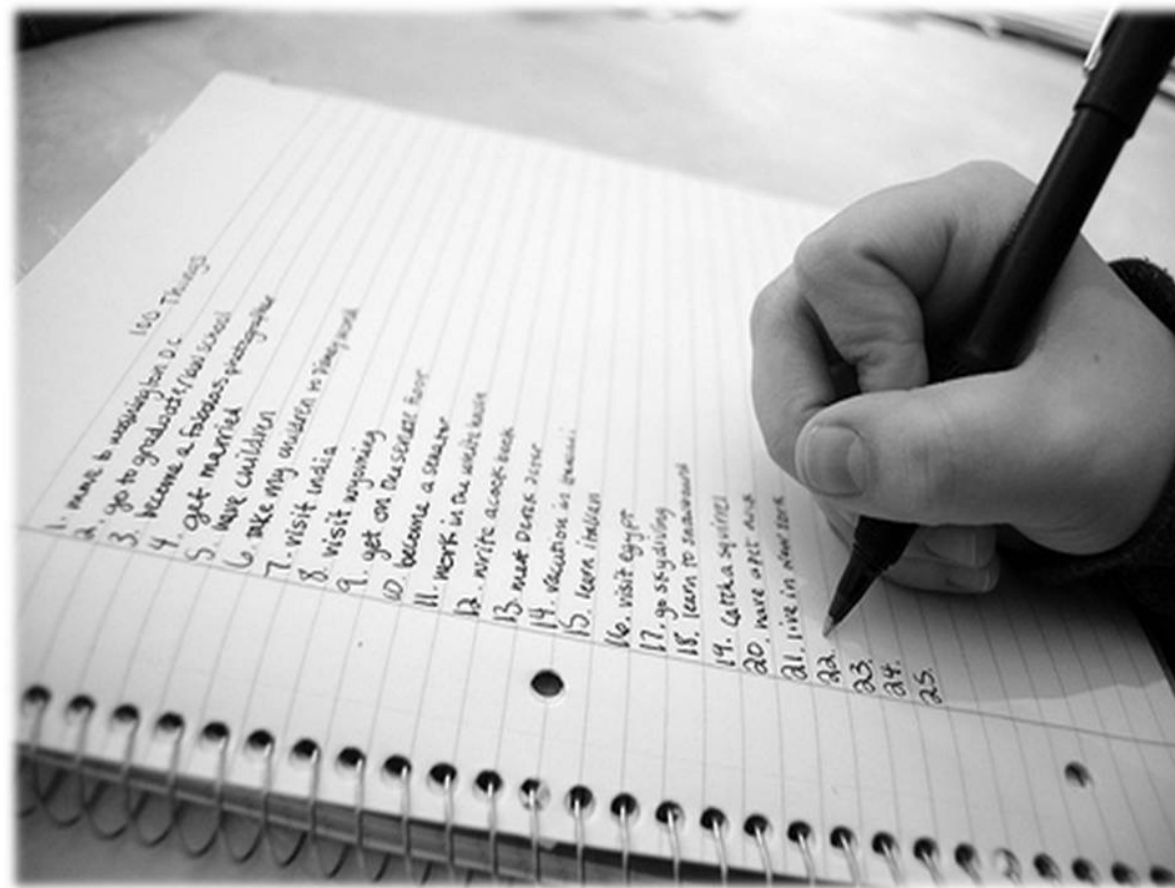 100 Things
1. move to washington D.C
2. go to graduate/law school
3. become a fabulous photographer
4. get married
5. have children
6. take my children to Disney world
7. visit India
8. visit wyoming
9. get on the senate floor
10. become a senator
11. work in the white house
12. write a cook book
13. meet Derek Jeter
14. vacation in Hawaii
15. learn italian
16. visit egypt
17. go skydiving
18. learn to snowboard
19. catch a squirrel
20. have a pet
21. live in New York
22.
23.
24.
25.